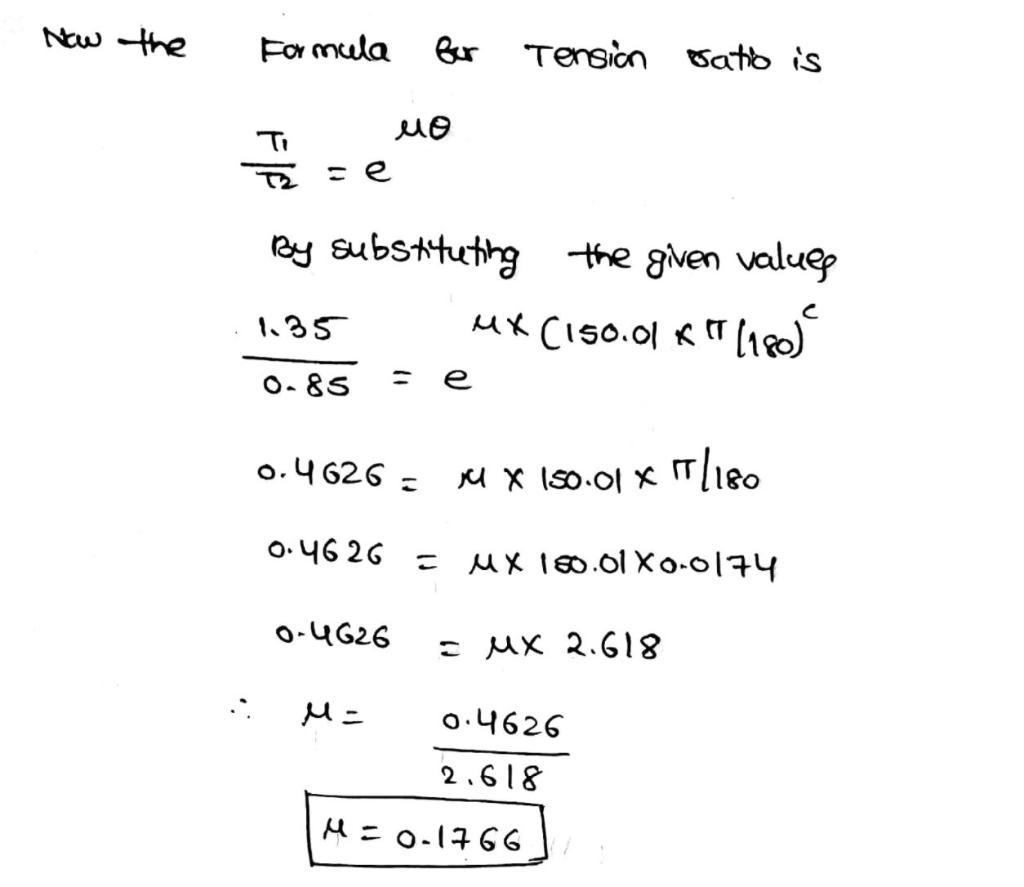 Now the Formula for Tension ratio is
T1/T2 = e^μθ
By substituting the given values
1.35/0.85 = e^μ×(150.01×π/180)^c
0.4626 = μ × 150.01 × π/180
0.4626 = μ× 150.01×0.0174
0.4626 = μ× 2.618
∴ μ = 0.4626/2.618
μ = 0.1766